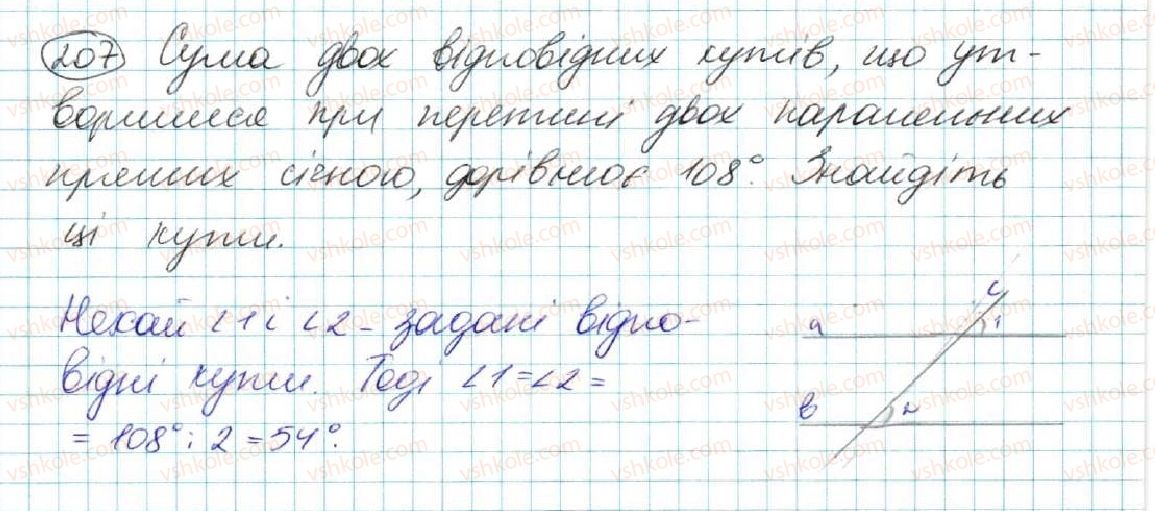 207 Сума двох відповідних кутів, що ут-
ворилися при перетині двох паралельних
прямих січною, дорівнює 108°. Знайдіть
ці кути.
Нехай ∠1 і ∠2 - задані відпо-
відні кути. Тоді ∠1 = ∠2 =
= 108° : 2 = 54°.
c
a 1
b 2
vshkole.com